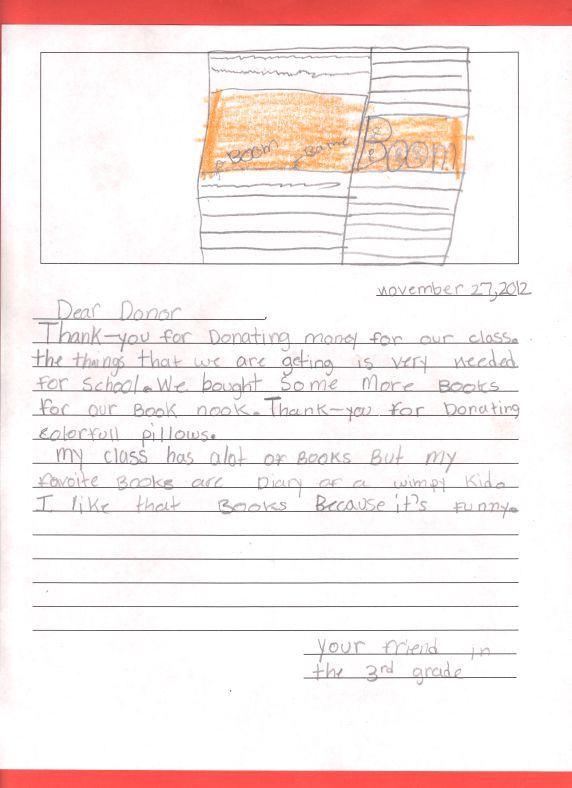 BOOM
BOOM
november 27,2012
Dear Donor,
Thank-you for Donating money for our class.
the things that we are geting is very needed
for school. We bought some More Books
for our Book nook. Thank-you for Donating
colorfull pillows.
My class has alot of Books But my
favoite Books are Diary of a wimpy Kid.
I like that Books Because it's funny.
your friend in
the 3rd grade